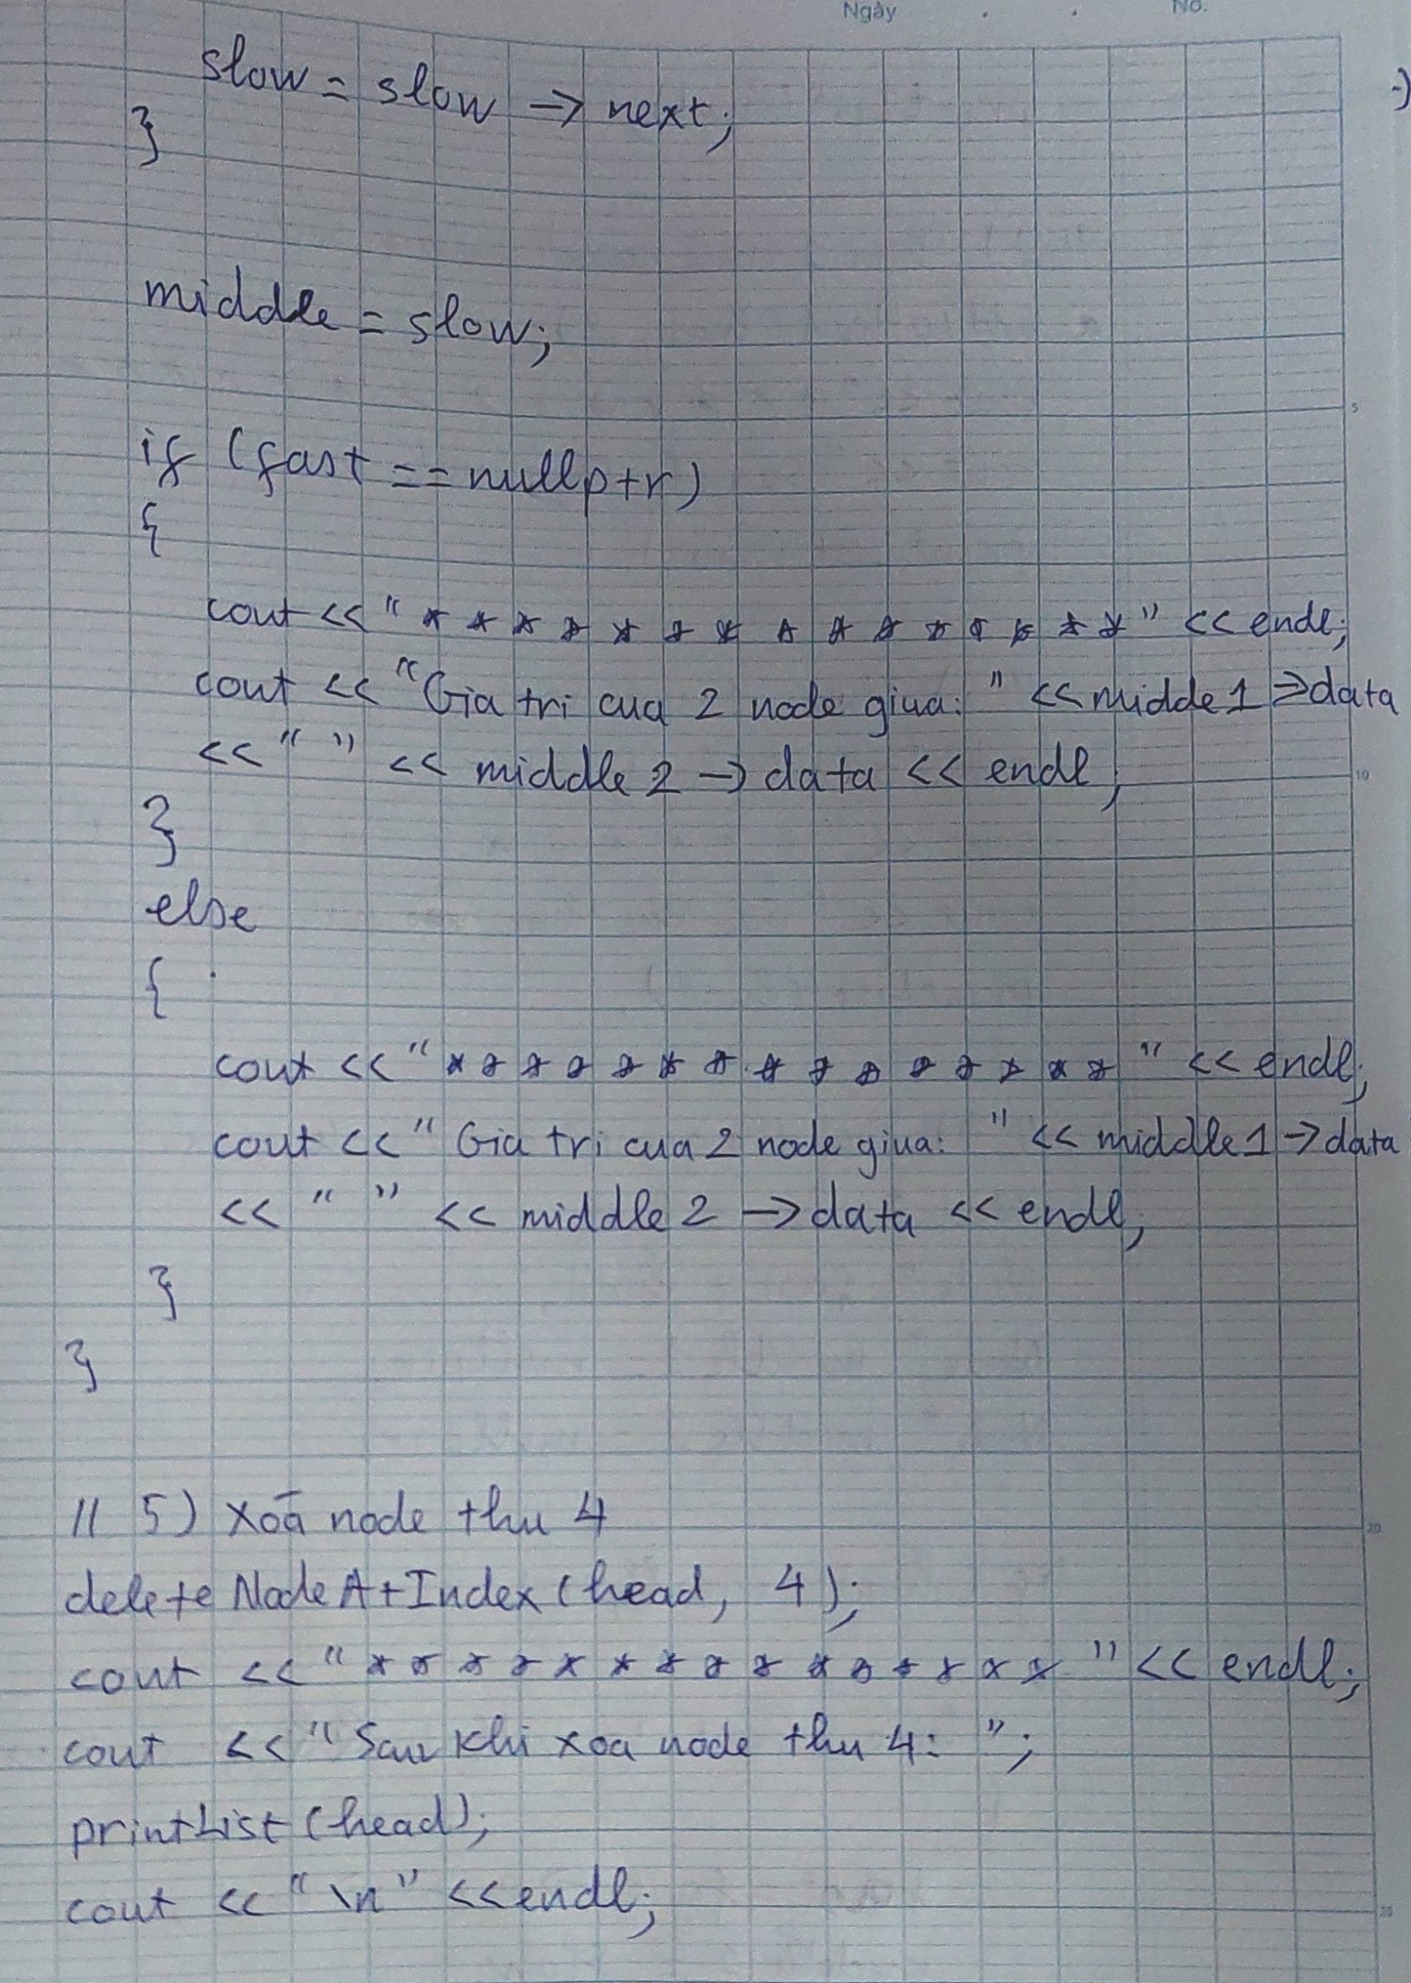 Ngày . . No.
slow = slow -> next;
}
middle = slow;
if (fast == nullptr)
{
cout << "* * * * * * * * * * * * * * *" << endl;
cout << "Gia tri cua 2 node giua: " << midde1 => data
<< " " << middle2 -> data << endl;
}
else
{
cout << "* * * * * * * * * * * * * * *" << endl;
cout << "Gia tri cua 2 node giua: " << middle1 -> data
<< " " << middle2 -> data << endl;
}
}
// 5) Xoā node thu 4
delete NodeAtIndex (head, 4);
cout << "* * * * * * * * * * * * * * *" << endl;
cout << "Sau khi xoa node thu 4: ";
printList (head);
cout << "\n" << endl;
5
10
20
25